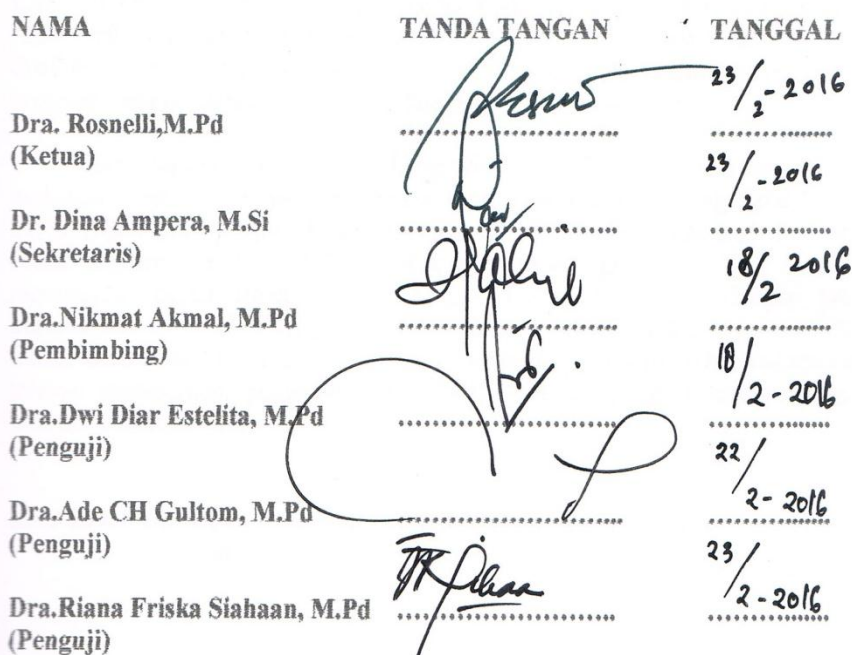 NAMA TANDA TANGAN TANGGAL
23/2-2016
Dra. Rosnelli,M.Pd ........................
(Ketua)
23/2-2016
Dr. Dina Ampera, M.Si ........................
(Sekretaris)
18/2 2016
Dra.Nikmat Akmal, M.Pd ........................
(Pembimbing)
18/2-2016
Dra.Dwi Diar Estelita, M.Pd ........................
(Penguji)
22/2-2016
Dra.Ade CH Gultom, M.Pd ........................
(Penguji)
23/2-2016
Dra.Riana Friska Siahaan, M.Pd ........................
(Penguji)